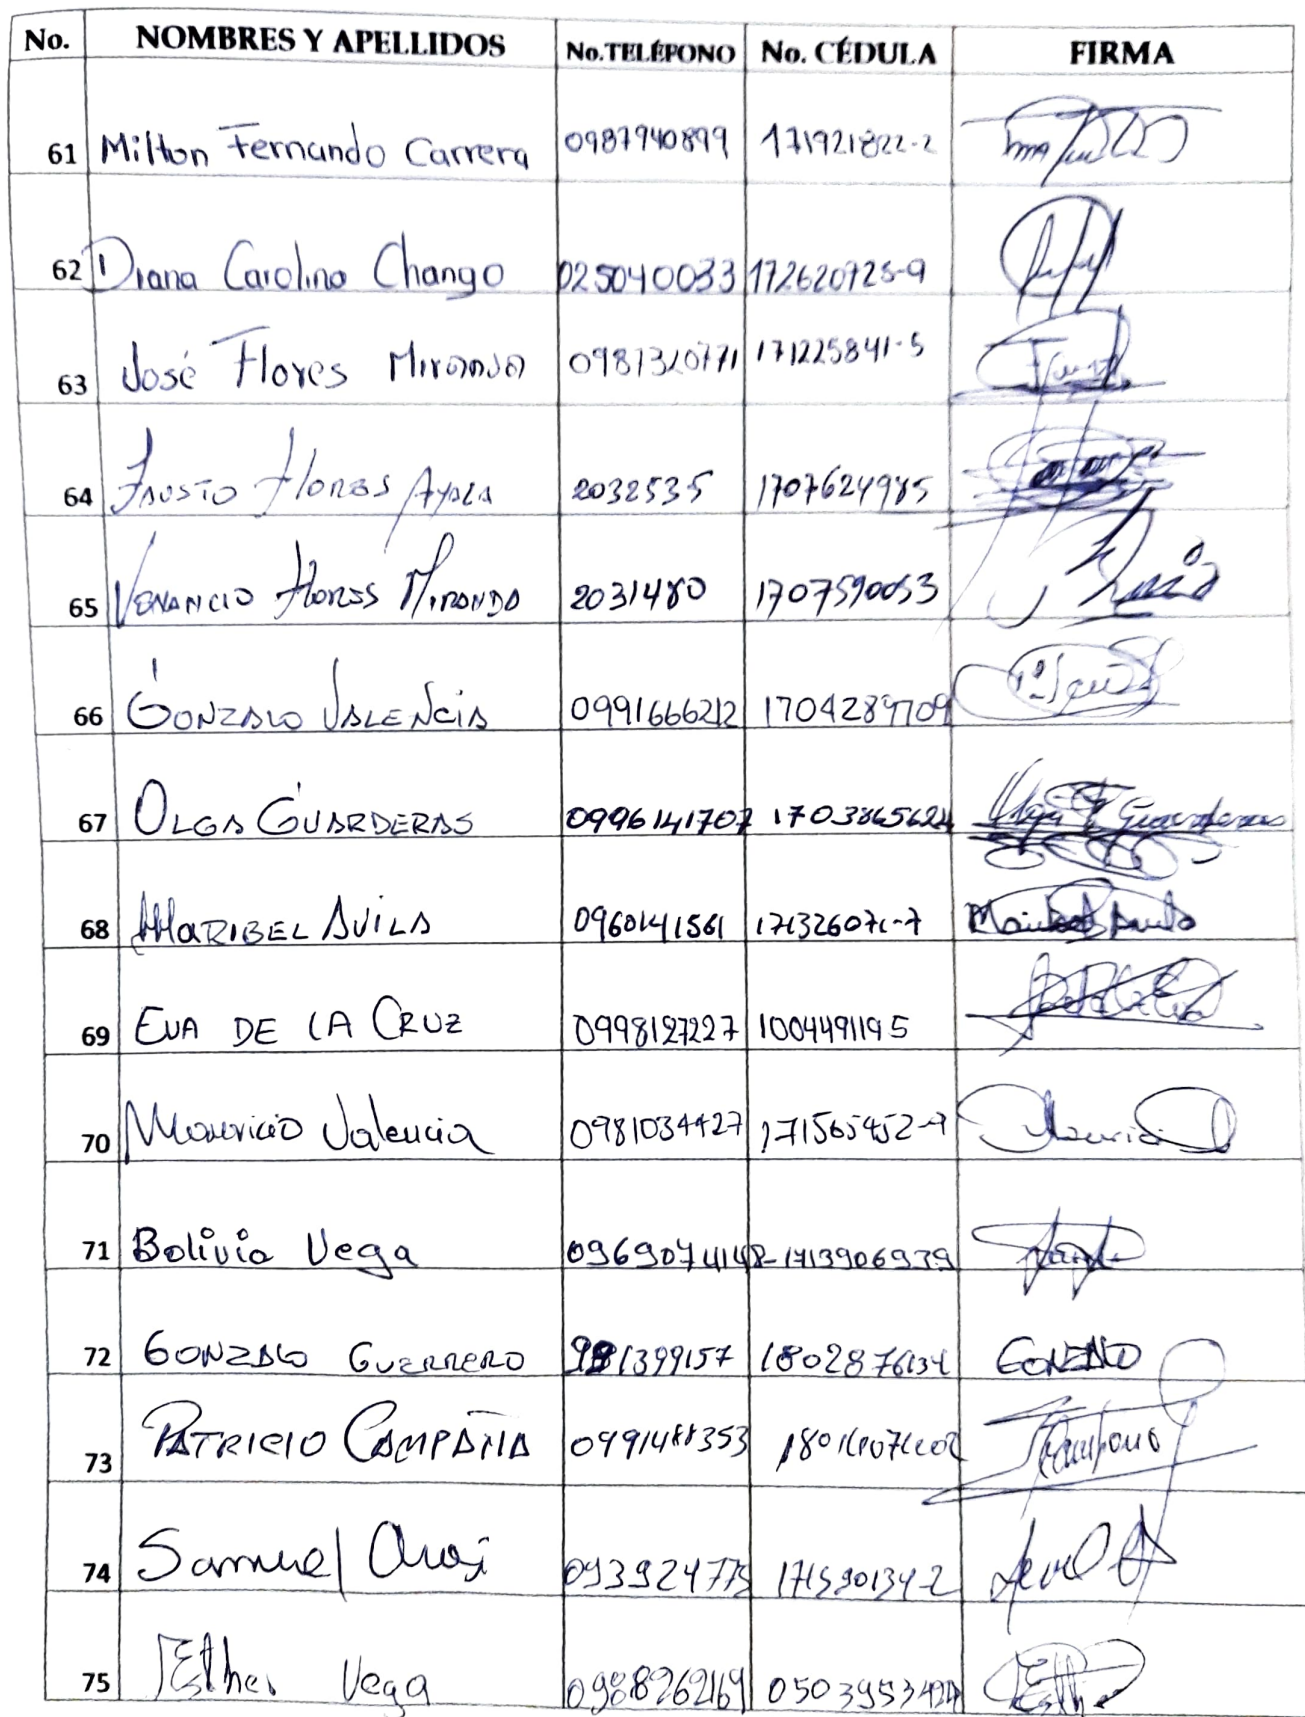 No. NOMBRES Y APELLIDOS No.TELÉFONO No. CÉDULA FIRMA
61 Milton Fernando Carrera 0987940899 171921822-2
62 Diana Carolina Chango 025040033 172620725-9
63 José Flores Miranda 0981320771 171225841-5
64 Fausto Flores Ayala 2032535 1707624985
65 Venancio Flores Miranda 2031480 1707590053
66 Gonzalo Valencia 0991666212 1704289709
67 OLGA GUARDERAS 0996141707 Olga E Guarderas
68 MARIBEL AVILA 0960141561 171326071-7 Maribel Avila
69 EVA DE LA CRUZ 0998127227 1004491195
70 Mauricio Valencia 0981034427 171565452-9 Mauricio
71 Bolivia Vega 0969074148-1713906939
72 GONZALO GUERRERO 1802876134 GONZALO
73 PATRICIO CAMPAÑA 0991488353 Campaña
74 Samuel 093924775 171590134-2
75 Esther Vega 0988262169 Esther